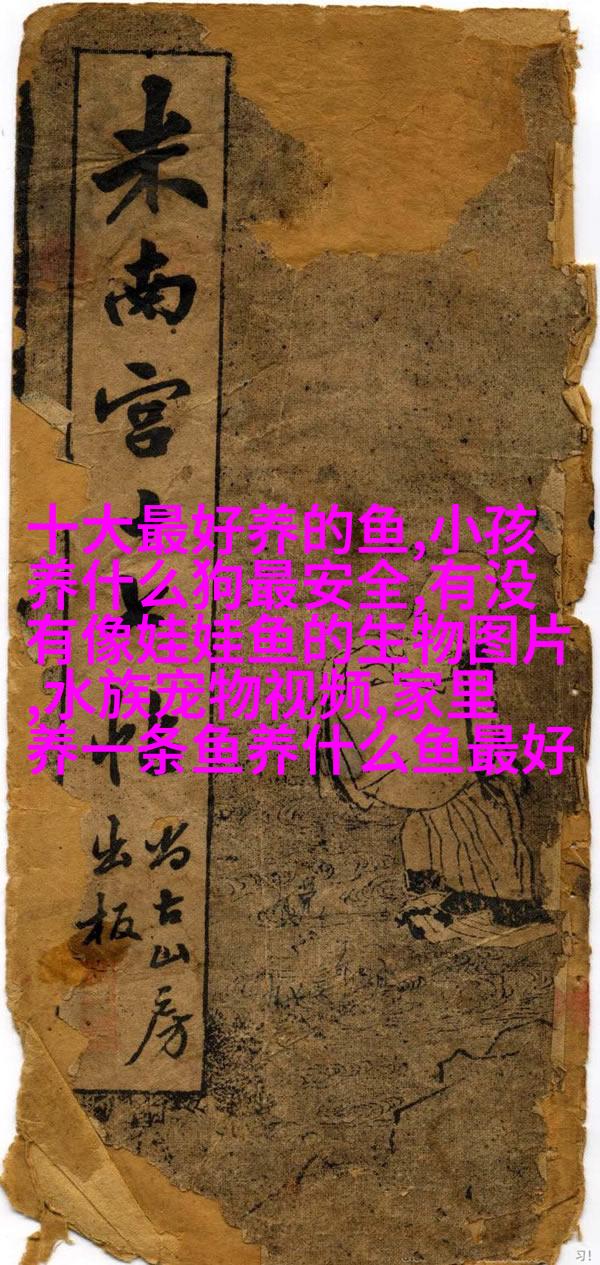 米南宫
尚古山房
出板
十大最好养的鱼,小孩
养什么狗最安全,有没
有像娃娃鱼的生物图片
,水族宠物视频,家里
养一条鱼养什么鱼最好
习!